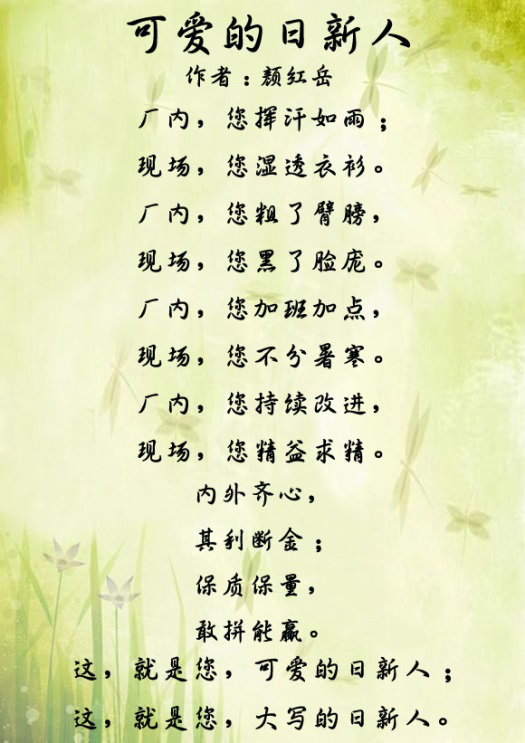 可爱的日新人
作者：颜红岳
厂内，您挥汗如雨；
现场，您湿透衣衫。
厂内，您粗了臂膀，
现场，您黑了脸庞。
厂内，您加班加点，
现场，您不分暑寒。
厂内，您持续改进，
现场，您精益求精。
内外齐心，
其利断金；
保质保量，
敢拼能赢。
这，就是您，可爱的日新人；
这，就是您，大写的日新人。